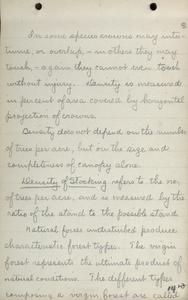 8
In some species crowns may inter-
twine, or overlap, - in others they may
touch, - again they cannot even touch
without injury. Density is measured
in percent of area covered by horizontal
projection of crowns.
Density does not depend on the number
of trees per acre, but on the size and
completeness of canopy alone.
Density of Stocking refers to the no.
of trees per acre, and is measured by the
ratio of the stand to the possible stand.
Natural forces undisturbed produce
characteristic forest types. The virgin
forest represents the ultimate product
of natural conditions. The different types
composing a virgin forest are called